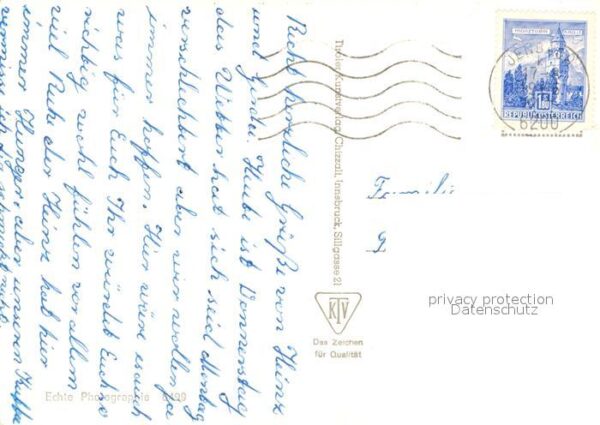 Recht herzliche Grüße von Heinz
und Gerti. Heute ist Donnerstag
das Wetter hat sich seid Montag
verschlechtert aber wir wollen ja
immer hoffen. Hier wäre es auch
was für Euch Ihr würdet Euch so
richtig wohl fühlen vor allem
viel Ruhe der Heinz hat hier
immer Hunger, aber unseren Kaffee
vermissen
Tiroler Kunstverlag Chizzali, Innsbruck, Sillgasse 21
KTV
Das Zeichen
für Qualität
Echte Photographie 8499
REPUBLIK ÖSTERREICH
6200
Familie
privacy protection
Datenschutz